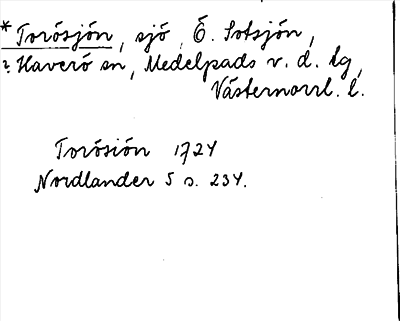 * Torösjön, sjö, Ö. Sotsjön,
? Haverö sn, Medelpads v. d. tg,
Västernorrl. l.
Torösiön 1724
Nordlander 5 s. 234.